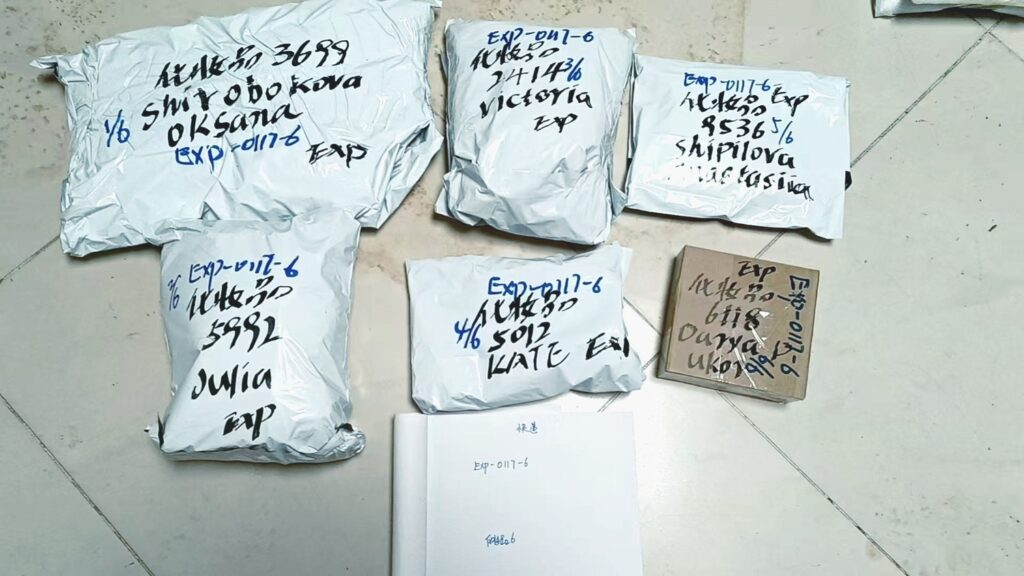 化妆品 3699
shirobokova
oksana
1/6
Exp-0117-6
Exp
Exp-0117-6
化妆品
2414 3/6
victoria
Exp
Exp-0117-6
化妆品 Exp
8536 5/6
shipilova
anastasiia
2/6 Exp-0117-6
化妆品
5992
Julia
Exp
Exp-0117-6
化妆品
4/6 5012
KATE Exp
Exp
化妆品
6118
Darya
6/6
Exp-0117-6
快递
Exp-0117-6
化妆品6